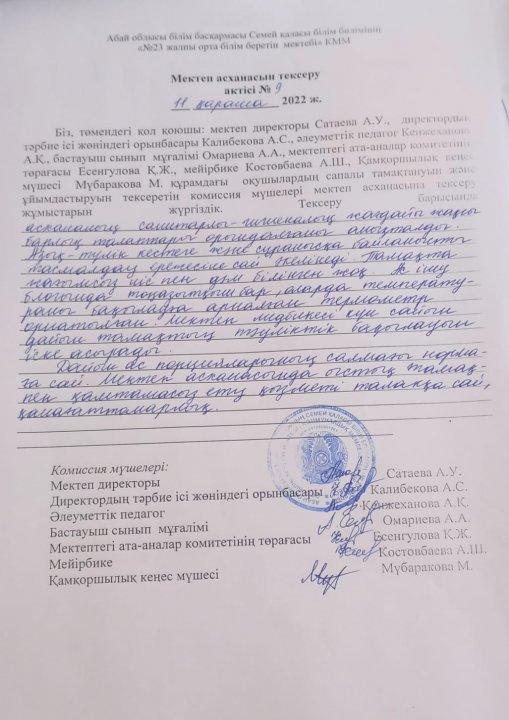 Абай облысы білім басқармасы Семей қаласы білім бөлімінің
«№23 жалпы орта білім беретін мектебі» КММ
Мектеп асханасын тексеру
актісі № 9
11 қараша 2022 ж.
Біз, төмендегі қол қоюшы: мектеп директоры Сатаева А.У., директордың
тәрбие ісі жөніндегі орынбасары Калибекова А.С., әлеуметтік педагог Кенжеханова
А.Қ., бастауыш сынып мұғалімі Омариева А.А., мектептегі ата-аналар комитетінің
төрағасы Есенгулова Қ.Ж., мейірбике Костовбаева А.Ш., Қамқоршылық кеңес
мүшесі Мұбаракова М. құрамдағы оқушылардың сапалы тамақтануын және
ұйымдастыруын тексеретін комиссия мүшелері мектеп асханасына тексеру
жұмыстарын жүргіздік. Тексеру барысында
асхананың санитарлы-гигиеналық жағдайы жақсы
барлық талаптары орындалғаны анықталды.
Азық-түлік кестеге және сұранысқа байланысты
тасмалдау ережесіне сай әкелінеді. Тамақта
жағымсыз иіс пен дәм білінген жоқ. Ас ішу
блогында тоңазытқыш бар, аларда температу-
раны бақылауға арналған термометр
орнатылған. Мектеп медбикесі күн сайын
дайын тамақтың тәуліктік бақылауын
іске асырады.
Дайын ас порцияларының салмағы норма-
ға сай. Мектеп асханасында ыстық тамақ-
пен қамтамасыз ету қызметі талапқа сай,
қанағаттанарлық.
Комиссия мүшелері:
Мектеп директоры Сатаева А.У.
Директордың тәрбие ісі жөніндегі орынбасары Калибекова А.С.
Әлеуметтік педагог Кенжеханова А.Қ.
Бастауыш сынып мұғалімі Омариева А.А.
Мектептегі ата-аналар комитетінің төрағасы Есенгулова Қ.Ж.
Мейірбике Костовбаева А.Ш.
Қамқоршылық кеңес мүшесі Мұбаракова М.